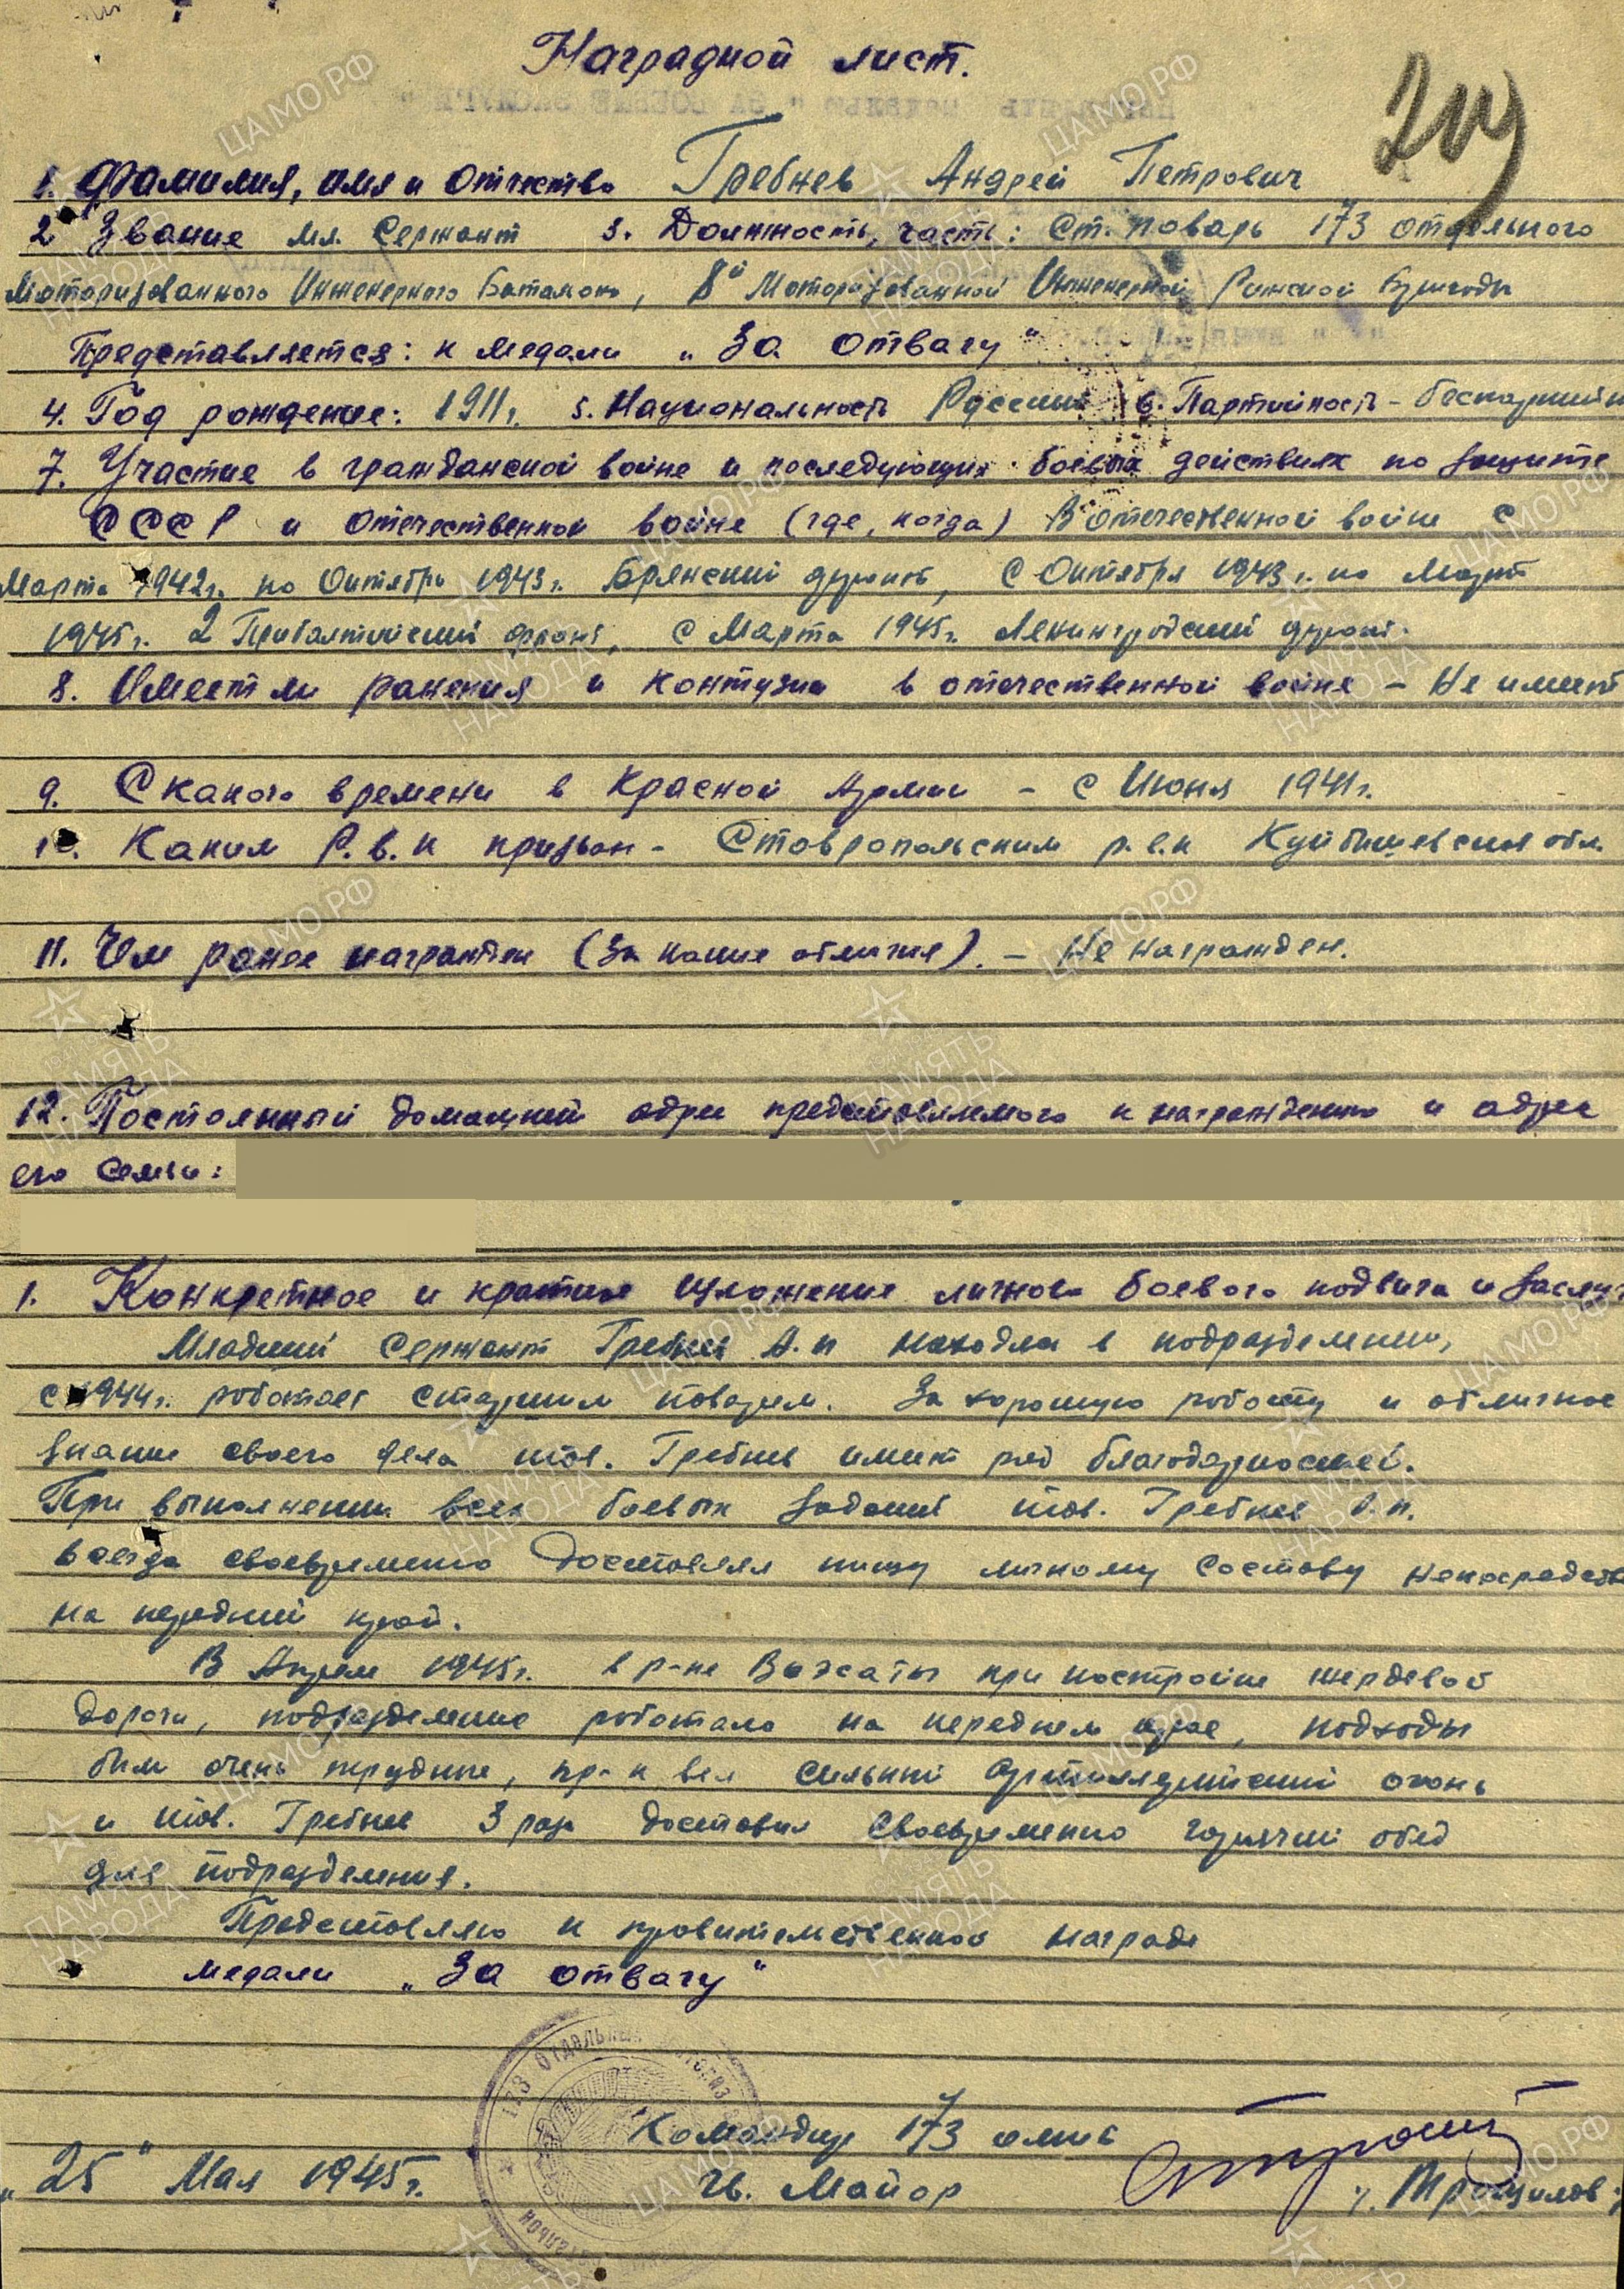 Наградной лист.
209
1. Фамилия, имя и отчество Гребнев Андрей Петрович
2 Звание мл. Сержант 3. Должность, часть: Ст. поварь 173 отдельного
Моторизованного Инженерного Баталиона, 8й Моторизованной Инженерной Рижской Бригады
Представляется: к медали „За отвагу"
4. Год рождение: 1911г. 5. Национальность Русский 6. Партийность - беспартийн
7. Участие в гражданской войне и последующих боевых действиях по защите
СССР и отечественной войне (где, когда) В отечественной войне с
Марта 1942г. по Октябрь 1943г. Брянский фронт, с Октября 1943г. по Март
1945г. 2 Прибалтийский фронт, с Марта 1945г. Ленинградский фронт.
8. Имеет ли ранения и контузии в отечественной войне - Не имеет
9. С какого времени в Красной Армии - с Июня 1941г.
10. Каким Р.в.к призван - Ставропольским р.в.к Куйбышевской обл.
11. Чем ранее награжден (За какие отличия). - Не награжден.
12. Постоянный домашний адрес представляемого к награждению и адрес
его семьи:
1. Конкретное и краткое изложение личного боевого подвига и заслуг
Младший Сержант Гребнев А.П находясь в подразделении,
с 1944г. работает старшим поваром. За хорошую работу и отличное
знание своего дела тов. Гребнев имеет ряд благодарностей.
При выполнении всех боевых заданий тов. Гребнев А.П.
всегда своевременно доставлял пищу личному составу непосредств
на передний край.
В Апреле 1945г. в р-не Высаты при постройке жердевой
дороги, подразделение работало на переднем крае, подходы
были очень трудные, пр-к вел сильный артиллерийский огонь
и тов. Гребнев 3 раза доставил своевременно горячий обед
для подразделения.
Представляю к правительственной награде
медали „За отвагу"
173 ОТДЕЛЬНЫЙ
Командир 173 омиб
„25" Мая 1945г. гв. Майор